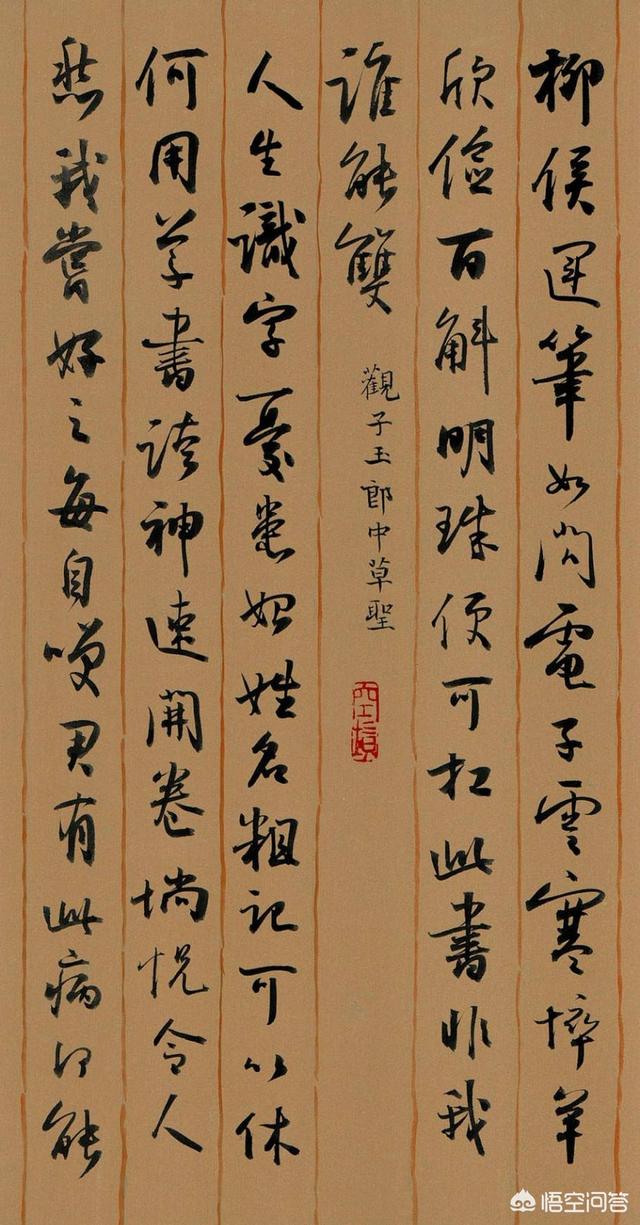 柳侯運筆如閃電子雲寒悴羊
欣儉百斛明珠便可扛此書非我
誰能雙
觀子玉郎中草聖
人生識字憂患始姓名粗記可以休
何用草書誇神速開卷惝怳令人
愁我嘗好之每自咲君有此病何能
悟空问答